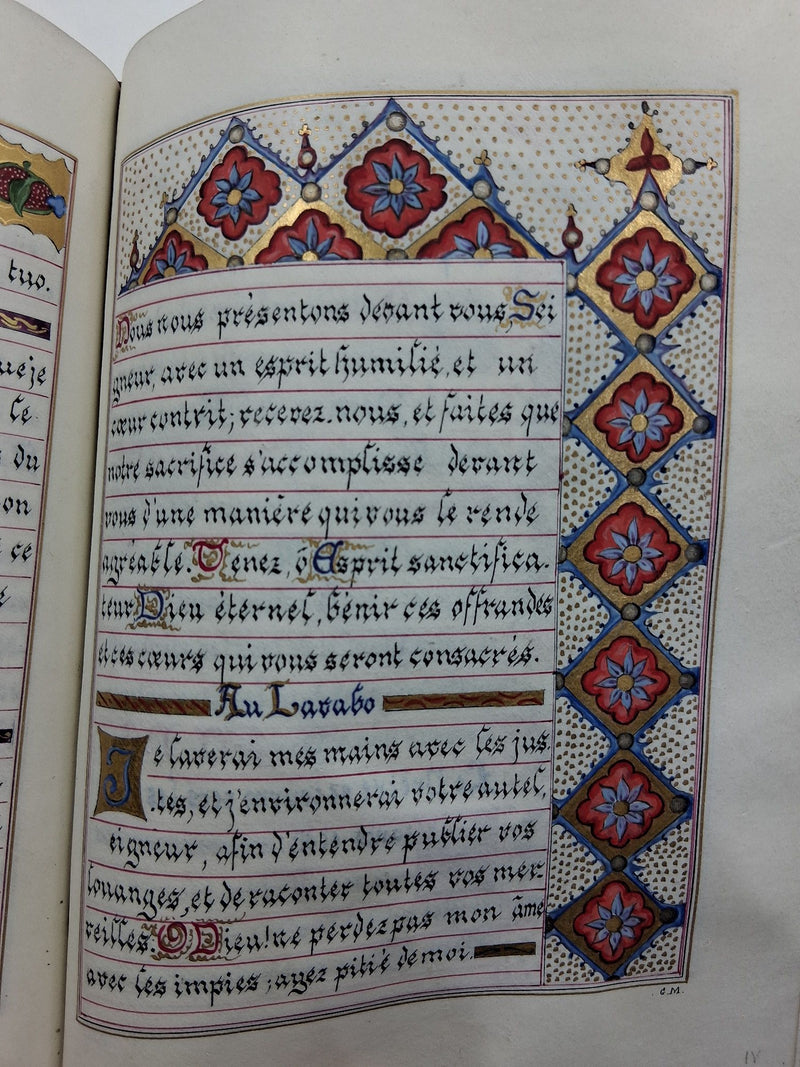 tuo.
ueje
le
du
on
ce
Nous nous présentons devant vous, Sei
gneur, avec un esprit humilié, et un
cœur contrit; recevez-nous, et faites que
notre sacrifice s'accomplisse devant
vous d'une manière qui vous le rende
agréable. Venez, ô Esprit sanctifica-
teur Dieu éternel, bénir ces offrandes
et ces cœurs qui vous seront consacrés.
Au Lavabo
Je laverai mes mains avec les jus-
tes, et j'environnerai votre autel,
eigneur, afin d'entendre publier vos
louanges, et de raconter toutes vos mer-
veilles. O Dieu! ne perdez pas mon âme
avec les impies; ayez pitié de moi.
C.M.
IV